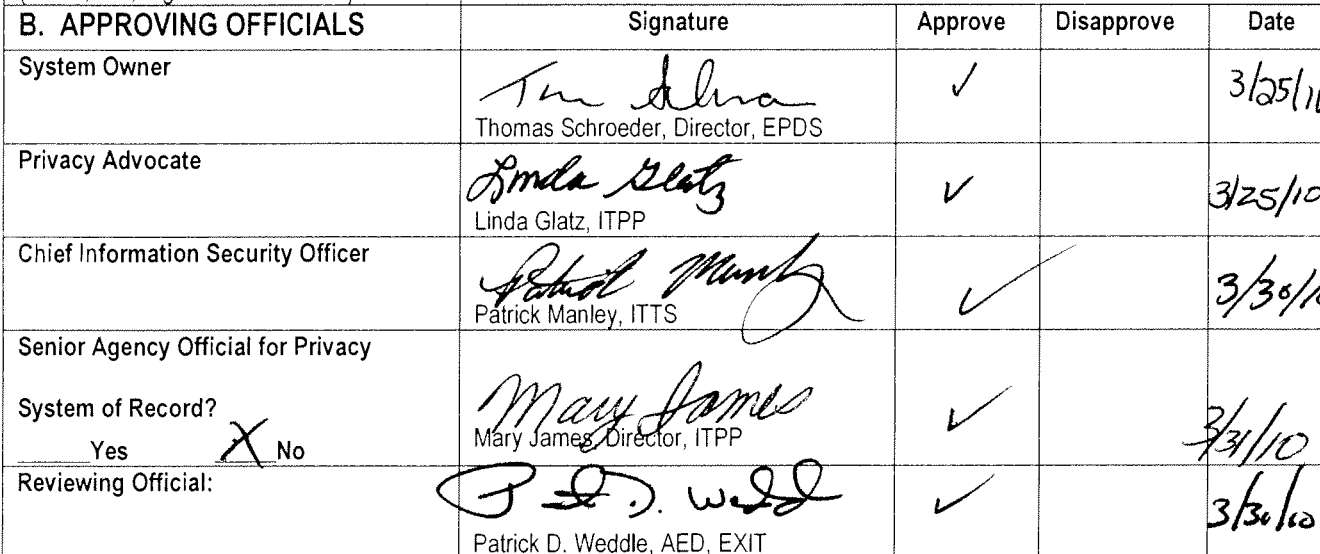 B. APPROVING OFFICIALS Signature Approve Disapprove Date
System Owner ✓ 3/25/10
Thomas Schroeder, Director, EPDS
Privacy Advocate Linda Glatz ✓ 3/25/10
Linda Glatz, ITPP
Chief Information Security Officer Patrick Manley ✓ 3/30/10
Patrick Manley, ITTS
Senior Agency Official for Privacy
System of Record? Mary James ✓ 3/31/10
Mary James, Director, ITPP
Yes X No
Reviewing Official: ✓ 3/30/10
Patrick D. Weddle, AED, EXIT